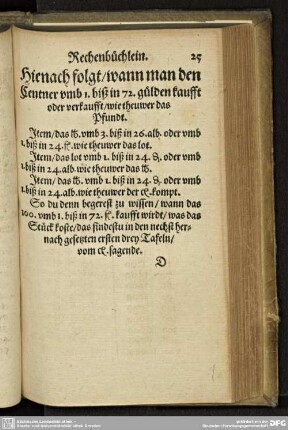 Rechenbüchlein. 25
Hienach folgt/wann man den
Centner vmb 1. biß in 72. gülden kaufft
oder verkaufft/wie theuwer das
Pfundt.
Item/das ℔. vmb 3. biß in 26. alb. oder vmb
1. biß in 24. fl. wie theuwer das lot.
Item/das lot vmb 1. biß in 24. ₰. oder vmb
1. biß in 24. alb. wie theuwer das ℔.
Item/das ℔. vmb 1. biß in 24. ₰. oder vmb
1. biß in 24. alb. wie theuwer der ct. kompt.
So du denn begerest zu wissen/wann das
100. vmb 1. biß in 72. fl. kaufft wirdt/was das
Stück koste/das findestu in den nechst her-
nach gesetzten ersten drey Tafeln/
vom ct. sagende.
D
DFG